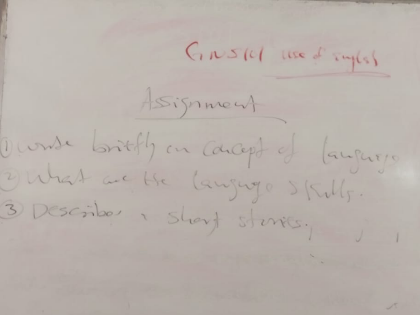 use of English
Assignment
① write briefly on concept of language
② What are the language skills.
③ Describe short stories,